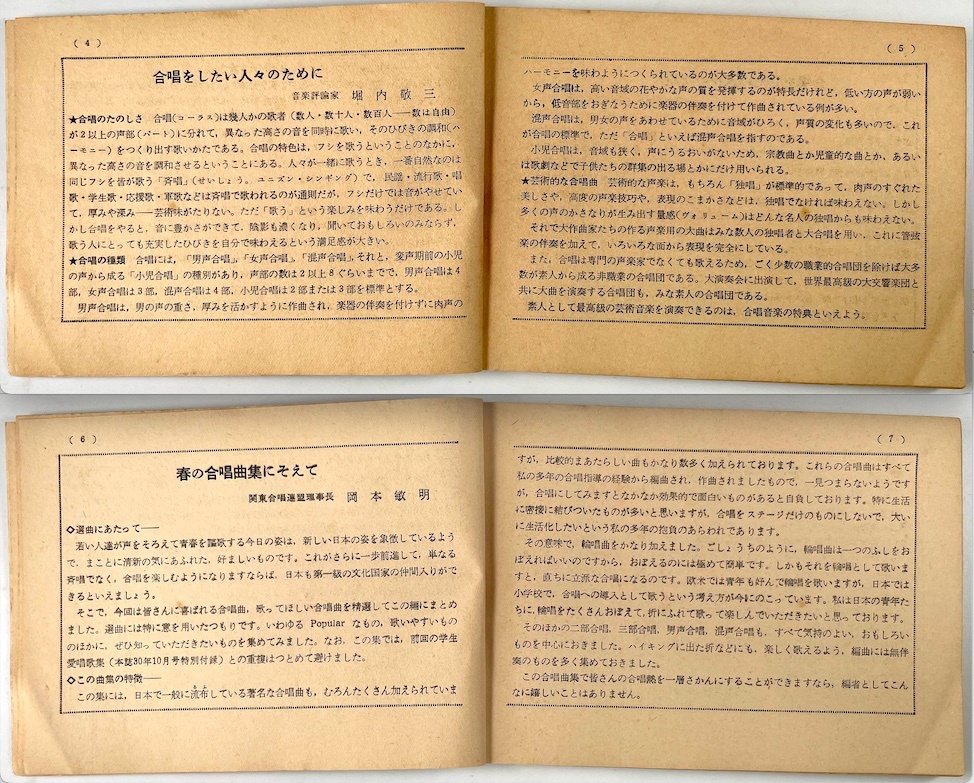 ( 4 )
合唱をしたい人々のために
音楽評論家 堀内敬三
★合唱のたのしさ 合唱(コーラス)は幾人かの歌者(数人・数十人・数百人——数は自由)
が2以上の声部(パート)に分れて，異なった高さの音を同時に歌い，そのひびきの調和(ハ
ーモニー)をつくり出す歌いかたである。合唱の特色は，フシを歌うということのなかに，
異なった高さの音を調和させるということにある。人々が一緒に歌うとき，一番自然なのは
同じフシを皆が歌う「斉唱」(せいしょう。ユニズン・シンギング)で，民謡・流行歌・唱
歌・学生歌・応援歌・軍歌などは斉唱で歌われるのが通則だが，フシだけでは音がやせてい
て，厚みや深み——芸術味がたりない。ただ「歌う」という楽しみを味わうだけである。し
かし合唱をやると，音に豊かさができて，陰影も濃くなり，聞いておもしろいのみならず，
歌う人にとっても充実したひびきを自分で味わえるという満足感が大きい。
★合唱の種類 合唱には，「男声合唱」，「女声合唱」，「混声合唱」，それと，変声期前の小児
の声から成る「小児合唱」の種別があり，声部の数は2以上8ぐらいまでで，男声合唱は4
部，女声合唱は3部，混声合唱は4部，小児合唱は2部または3部を標準とする。
男声合唱は，男の声の重さ，厚みを活かすように作曲され，楽器の伴奏を付けずに肉声の
( 5 )
ハーモニーを味わようにつくられているのが大多数である。
女声合唱は，高い音域の花やかな声の質を発揮するのが特長だけれど，低い方の声が弱い
から，低音部をおぎなうために楽器の伴奏を付けて作曲されている例が多い。
混声合唱は，男女の声をあわせているために音域がひろく，声質の変化も多いので，これ
が合唱の標準で，ただ「合唱」といえば混声合唱を指すのである。
小児合唱は，音域も狭く，声にうるおいがないため，宗教曲とか児童的な曲とか，あるい
は歌劇などで子供たちの群集の出る場とかにだけ用いられる。
★芸術的な合唱曲 芸術的な声楽は，もちろん「独唱」が標準的であって，肉声のすぐれた
美しさや，高度の声楽技巧や，表現のこまかさなどは，独唱でなければ味わえない。しかし
多くの声のかさなりが生み出す量感(ヴォリューム)はどんな名人の独唱からも味わえない。
それで大作曲家たちの作る声楽用の大曲はみな数人の独唱者と大合唱を用い，これに管弦
楽の伴奏を加えて，いろいろな面から表現を完全にしている。
また，合唱は専門の声楽家でなくても歌えるため，ごく少数の職業的合唱団を除けば大多
数が素人から成る非職業の合唱団である。大演奏会に出演して，世界最高級の大交響楽団と
共に大曲を演奏する合唱団も，みな素人の合唱団である。
素人として最高級の芸術音楽を演奏できるのは，合唱音楽の特典といえよう。
( 6 )
春の合唱曲集にそえて
関東合唱連盟理事長 岡本敏明
◇選曲にあたって——
若い人達が声をそろえて青春を謳歌する今日の姿は，新しい日本の姿を象徴しているよう
で，まことに清新の気にあふれた，好ましいものです。これがさらに一歩前進して，単なる
斉唱でなく，合唱を楽しむようになりますならば，日本も第一級の文化国家の仲間入りがで
きるといえましょう。
そこで，今回は皆さんに喜ばれる合唱曲，歌ってほしい合唱曲を精選してこの編にまとめ
ました。選曲には特に意を用いたつもりです。いわゆる Popular なもの，歌いやすいもの
のほかに，ぜひ知っていただきたいものを集めてみました。なお，この集では，前回の学生
愛唱歌集(本誌30年10月号特別付録)との重複はつとめて避けました。
◇この曲集の特徴——
この集には，日本で一般に流布している著名な合唱曲も，むろんたくさん加えられていま
( 7 )
すが，比較的まあたらしい曲もかなり数多く加えられております。これらの合唱曲はすべて
私の多年の合唱指導の経験から編曲され，作曲されましたもので，一見つまらないようです
が，合唱にしてみますとなかなか効果的で面白いものがあると自負しております。特に生活
に密接に結びついたものが多いと思いますが，合唱をステージだけのものにしないで，大い
に生活化したいという私の多年の抱負のあらわれであります。
その意味で，輪唱曲をかなり加えました。ごしょうちのように，輪唱曲は一つのふしをお
ぼえればいいのですから，おぼえるのには極めて簡単です。しかもそれを輪唱として歌いま
すと，直ちに立派な合唱になるのです。欧米では青年も好んで輪唱を歌いますが，日本では
小学校で，合唱への導入として歌うという考え方が今にのこっています。私は日本の青年た
ちに，輪唱をたくさんおぼえて，折にふれて歌って楽しんでいただきたいと思っております。
そのほかの二部合唱，三部合唱，男声合唱，混声合唱も，すべて気持のよい，おもしろい
ものを中心におきました。ハイキングに出た折などにも，楽しく歌えるよう，編曲には無伴
奏のものを多く集めておきました。
この合唱曲集で皆さんの合唱熱を一層さかんにすることができますなら，編者としてこん
なに嬉しいことはありません。